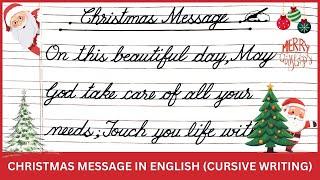 Christmas Message
On this beautiful day, May
God take care of all your
needs; Touch you life wit
MERRY
CHRISTMAS MESSAGE IN ENGLISH (CURSIVE WRITING)